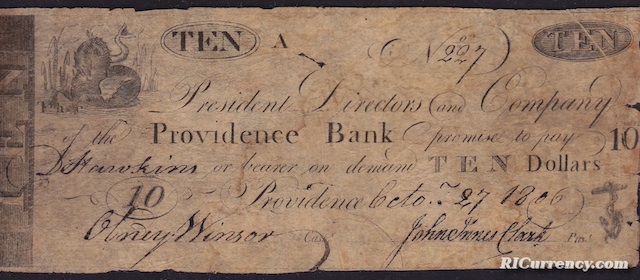 TEN A No 227 TEN
President Directors and Company
of the Providence Bank promise to pay 10
D Hawkins or bearer on demand TEN Dollars
10 Providence Octo. 27 1806
Olney Winsor Cash. John Innes Clark Pres.
RICurrency.com